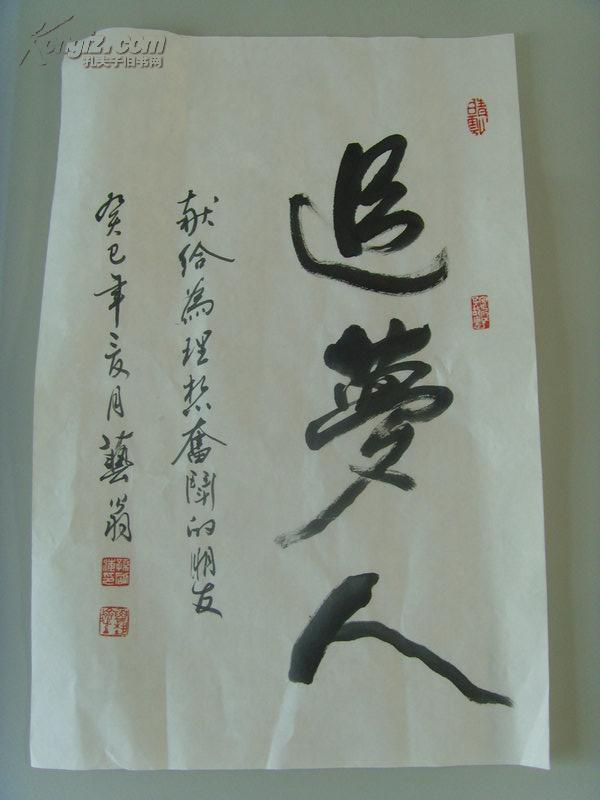 追夢人
献给為理想奮鬥的朋友
癸巳年三友月藝翁
Kongfz.com
孔夫子旧书网